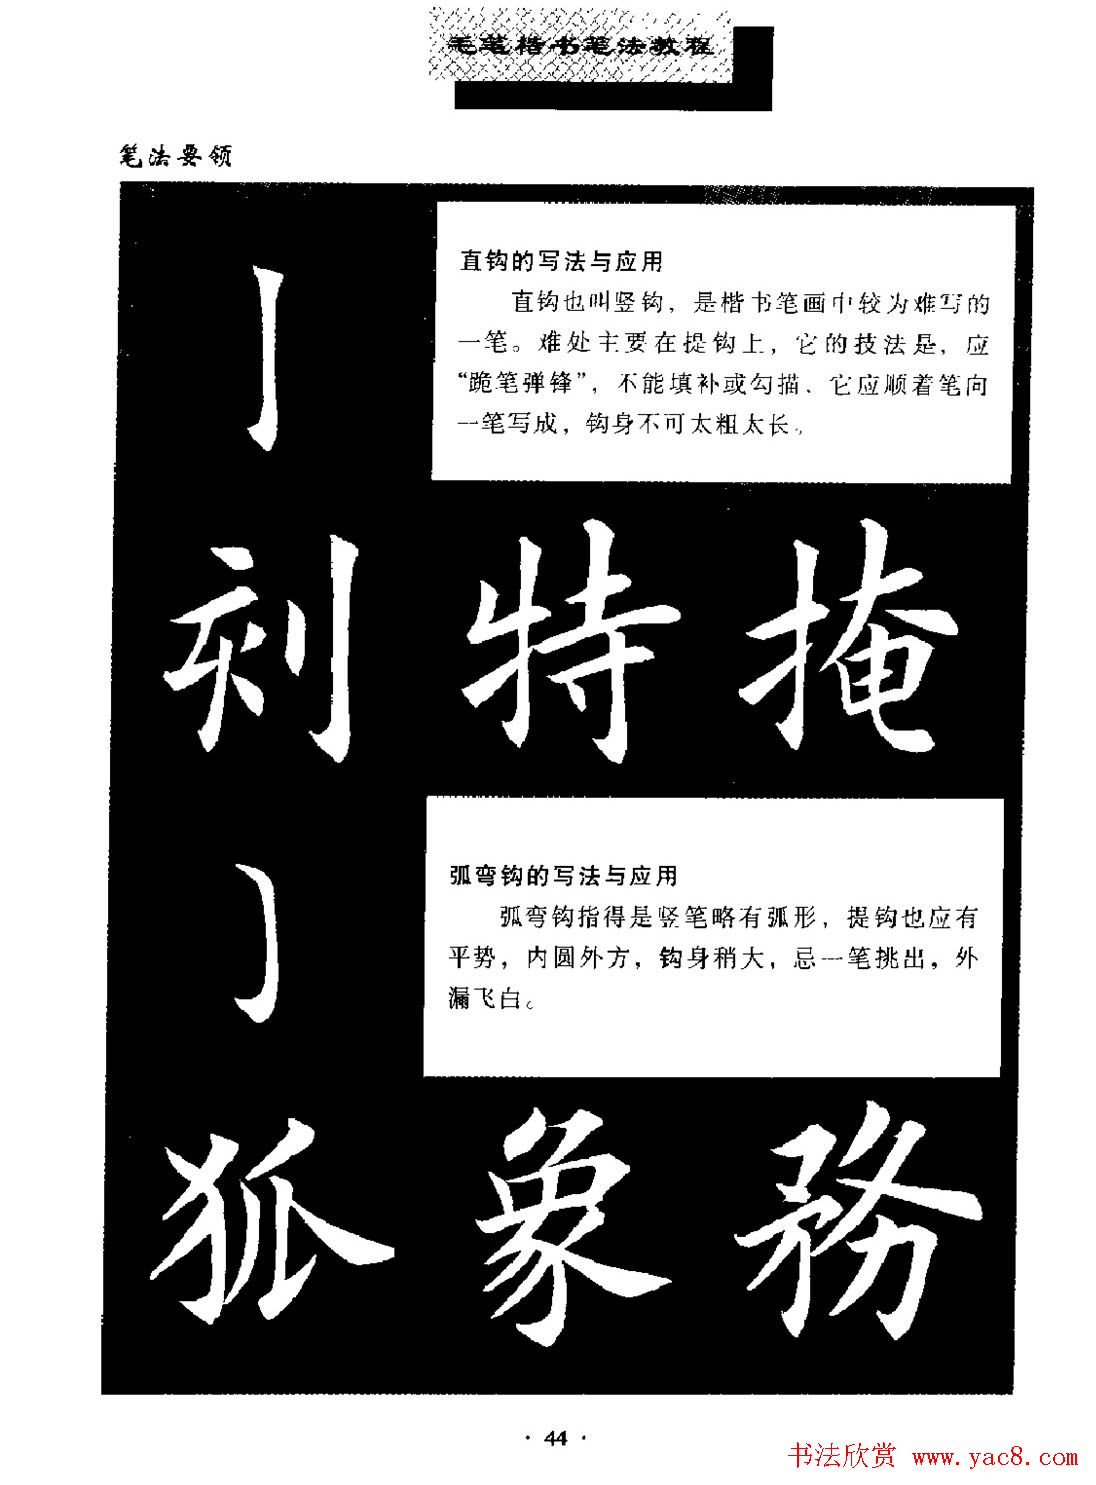 毛笔楷书笔法教程
笔法要领
直钩的写法与应用
直钩也叫竖钩，是楷书笔画中较为难写的
一笔。难处主要在提钩上，它的技法是，应
“跪笔弹锋”，不能填补或勾描、它应顺着笔向
一笔写成，钩身不可太粗太长。
刻 特 掩
弧弯钩的写法与应用
弧弯钩指得是竖笔略有弧形，提钩也应有
平势，内圆外方，钩身稍大，忌一笔挑出，外
漏飞白。
狐 象 務
· 44 ·
书法欣赏 www.yac8.com